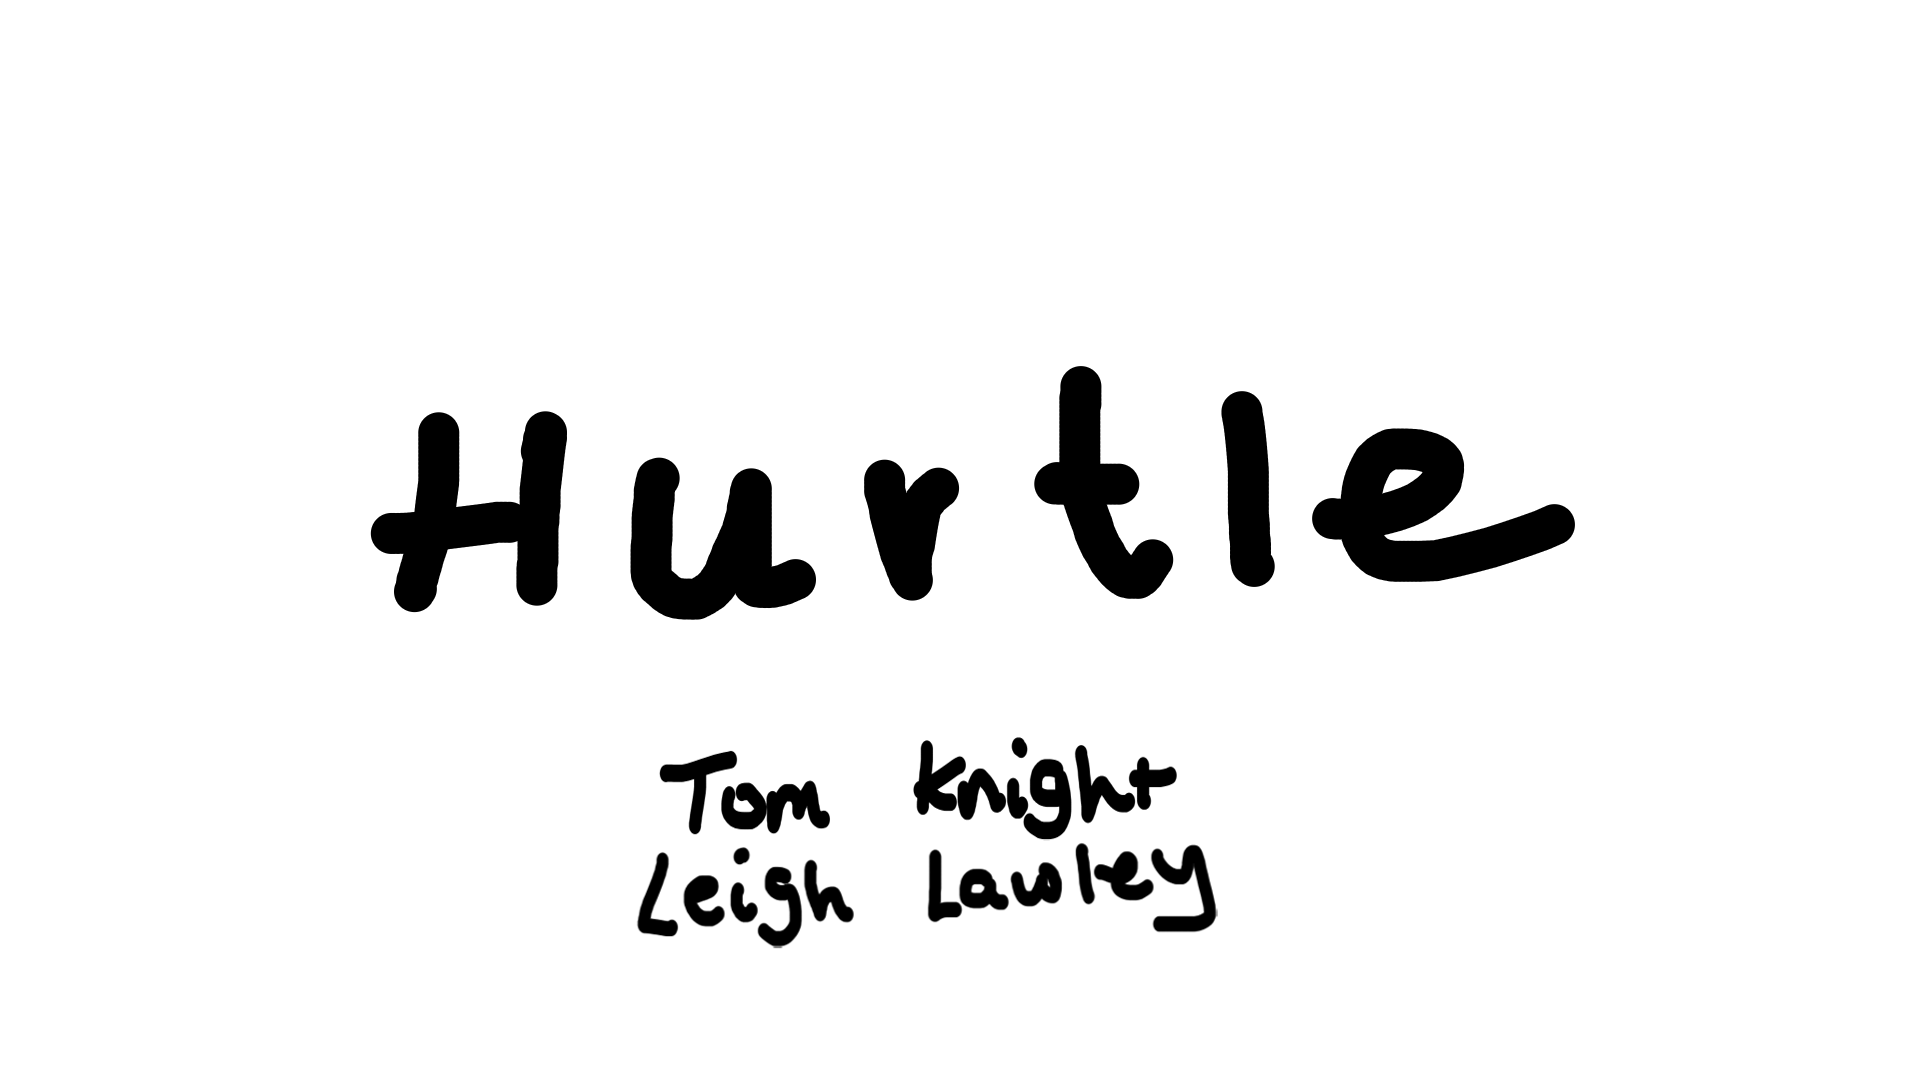 Hurtle
Tom Knight
Leigh Lawley